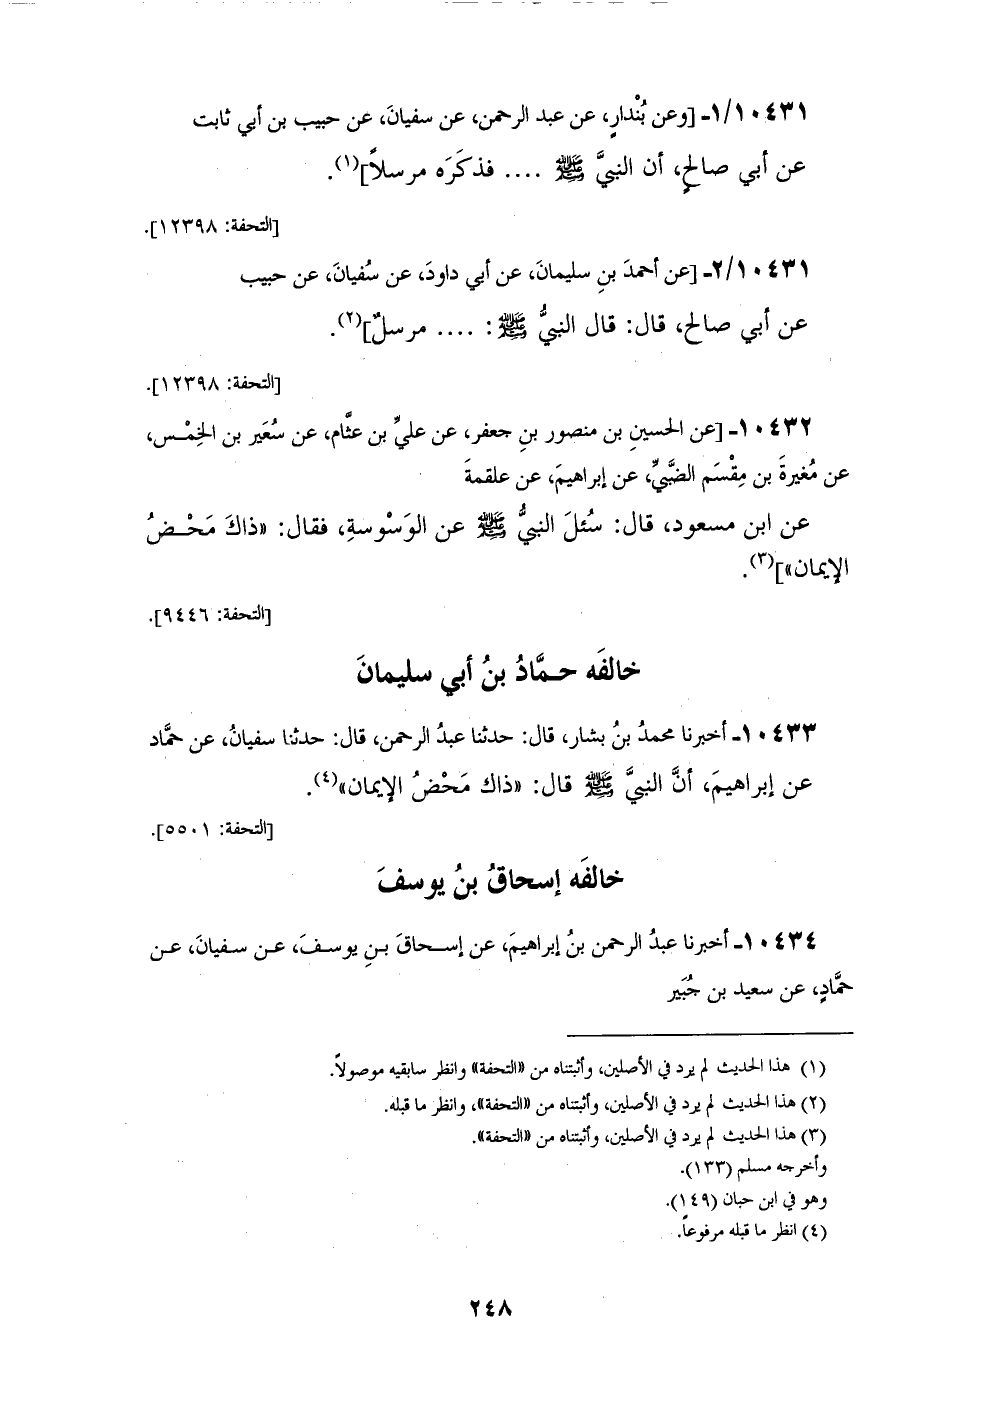 ١/١٠٤٣١ـ [وعن بُنْدارٍ، عن عبد الرحمن، عن سفيانَ، عن حبيب بن أبي ثابت
عن أبي صالحٍ، أن النبيَّ ﷺ .... فذكَرَه مرسلاً](١).
[التحفة: ١٢٣٩٨].
٢/١٠٤٣١ـ [عن أحمدَ بنِ سليمانَ، عن أبي داودَ، عن سُفيانَ، عن حبيب
عن أبي صالح، قال: قال النبيُّ ﷺ: .... مرسلٌ](٢).
[التحفة: ١٢٣٩٨].
١٠٤٣٢ـ [عن الحسينِ بن منصور بنِ جعفر، عن عليِّ بن عثَّام، عن سُعَير بن الخِمْس،
عن مُغيرةَ بن مِقْسَم الضَّبِّيِّ، عن إبراهيمَ، عن علقمةَ
عن ابن مسعود، قال: سُئلَ النبيُّ ﷺ عن الوَسْوسةِ، فقال: «ذاكَ مَحْضُ
الإيمان»](٣).
[التحفة: ٩٤٤٦].
خالفَه حمَّادُ بنُ أبي سليمانَ
١٠٤٣٣ـ أخبرنا محمدُ بنُ بشار، قال: حدثنا عبدُ الرحمن، قال: حدثنا سفيانُ، عن حمَّاد
عن إبراهيمَ، أنَّ النبيَّ ﷺ قال: «ذاك مَحْضُ الإيمان»(٤).
[التحفة: ٥٥٠١].
خالفَه إسحاقُ بنُ يوسفَ
١٠٤٣٤ـ أخبرنا عبدُ الرحمن بنُ إبراهيمَ، عن إسحاقَ بنِ يوسفَ، عن سفيانَ، عن
حمَّادٍ، عن سعيد بن جُبَير
(١) هذا الحديث لم يرد في الأصلين، وأثبتناه من «التحفة» وانظر سابقيه موصولاً.
(٢) هذا الحديث لم يرد في الأصلين، وأثبتناه من «التحفة»، وانظر ما قبله.
(٣) هذا الحديث لم يرد في الأصلين، وأثبتناه من «التحفة».
وأخرجه مسلم (١٣٣).
وهو في ابن حبان (١٤٩).
(٤) انظر ما قبله مرفوعاً.
٢٤٨